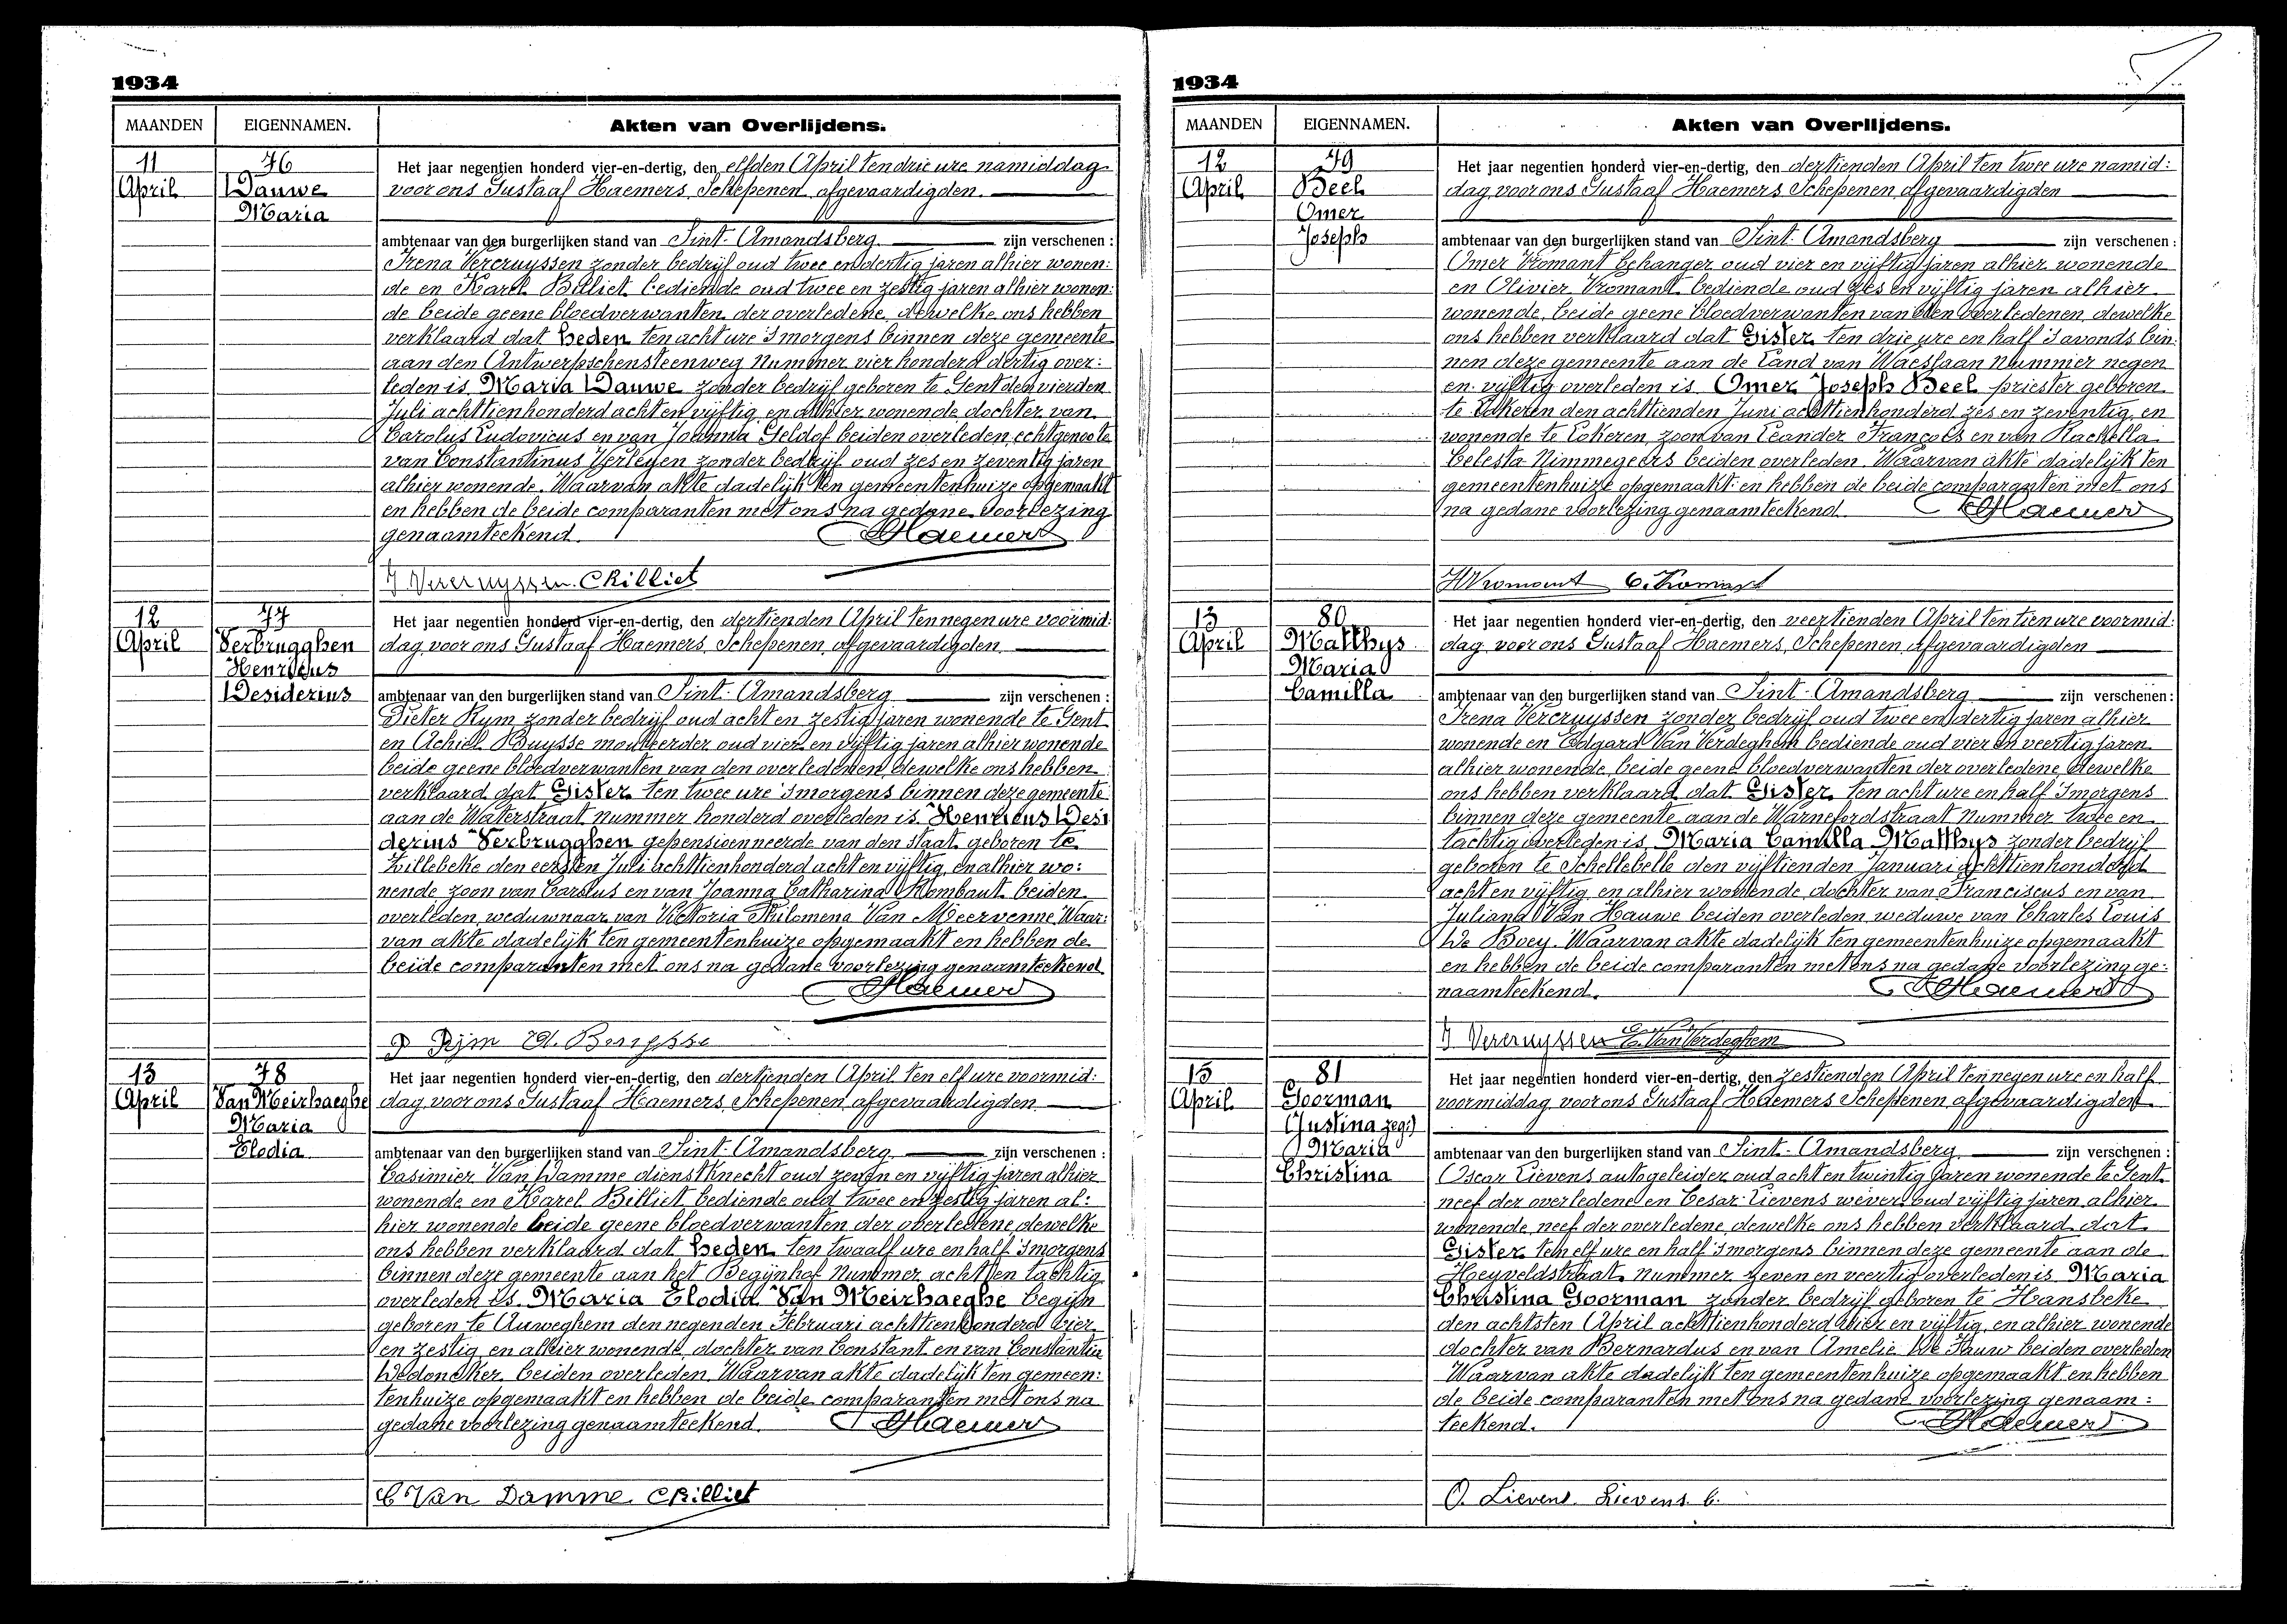 1934
MAANDEN EIGENNAMEN. Akten van Overlijdens.
11 April
76 Dauwe Maria
Het jaar negentien honderd vier-en-dertig, den elfden April ten drie ure namiddag
voor ons Gustaaf Haemers, Schepenen, afgevaardigden
ambtenaar van den burgerlijken stand van Sint-Amandsberg zijn verschenen :
Irena Vercruyssen zonder bedrijf oud twee en dertig jaren alhier wonen:
de en Karel Billiet bediende oud twee en zestig jaren alhier wonen:
de beide geene bloedverwanten der overledene, dewelke ons hebben
verklaard dat heden ten acht ure 's morgens binnen deze gemeente
aan den Antwerpschensteenweg nummer vier honderd dertig over:
leden is Maria Dauwe zonder bedrijf geboren te Gent den vierden
Juli achttienhonderd acht en vijftig en alhier wonende dochter van
Carolus Ludovicus en van Joanna Geldof beiden overleden, echtgenoote
van Constantinus Verleyen zonder bedrijf oud zes en zeventig jaren
alhier wonende. Waarvan akte dadelijk ten gemeentenhuize opgemaakt
en hebben de beide comparanten met ons na gedane voorlezing
genaamteekend. GHaemers
I Vercruyssen. CBilliet
12 April
77 Verbrugghen Henricus Desiderius
Het jaar negentien honderd vier-en-dertig, den dertienden April ten negen ure voormid:
dag, voor ons Gustaaf Haemers, Schepenen, afgevaardigden
ambtenaar van den burgerlijken stand van Sint-Amandsberg zijn verschenen :
Pieter Rym zonder bedrijf oud acht en zestig jaren wonende te Gent
en Achiel Buysse mouleerder oud vier en vijftig jaren alhier wonende
beide geene bloedverwanten van den overledenen, dewelke ons hebben
verklaard dat Gister ten twee ure 's morgens binnen deze gemeente
aan de Waterstraat nummer honderd overleden is Henricus Desi
derius Verbrugghen gepensioenneerde van den staat geboren te
Zillebeke den eersten Juli achttienhonderd acht en vijftig, en alhier wo:
nende zoon van Carolus en van Joanna Catharina Rombaut beiden
overleden, weduwnaar van Victoria Philomena Van Meervenne. Waar:
van akte dadelijk ten gemeentenhuize opgemaakt en hebben de
beide comparanten met ons na gedane voorlezing genaamteekend
GHaemers
P Rijm A. Buysse
13 April
78 Van Meirhaeghe Maria Elodia
Het jaar negentien honderd vier-en-dertig, den dertienden April ten elf ure voormid:
dag, voor ons Gustaaf Haemers, Schepenen, afgevaardigden
ambtenaar van den burgerlijken stand van Sint-Amandsberg zijn verschenen :
Casimier Van Damme dienstknecht oud zeven en vijftig jaren alhier
wonende en Karel Billiet bediende oud twee en zestig jaren al:
hier wonende beide geene bloedverwanten der overledene dewelke
ons hebben verklaard dat heden ten twaalf ure en half 's morgens
binnen deze gemeente aan het Begijnhof nummer acht en tachtig
overleden is Maria Elodia Van Meirhaeghe begijn
geboren te Auweghem den negenden Februari achttienhonderd vier
en zestig en alhier wonende, dochter van Constant en van Constantia
Dedoncker beiden overleden. Waarvan akte dadelijk ten gemeen:
tenhuize opgemaakt en hebben de beide comparanten met ons na
gedane voorlezing genaamteekend. GHaemers
C Van Damme CBilliet
1934
MAANDEN EIGENNAMEN. Akten van Overlijdens.
12 April
79 Beel Omer Joseph
Het jaar negentien honderd vier-en-dertig, den dertienden April ten twee ure namid:
dag, voor ons Gustaaf Haemers, Schepenen, afgevaardigden
ambtenaar van den burgerlijken stand van Sint-Amandsberg zijn verschenen :
Omer Vromant behanger oud vier en vijftig jaren alhier wonende
en Olivier Vromant bediende oud zes en vijftig jaren alhier
wonende, beide geene bloedverwanten van den overledenen, dewelke
ons hebben verklaard dat Gister ten drie ure en half 's avonds bin:
nen deze gemeente aan de Land van Waeslaan nummer negen
en vijftig overleden is Omer Joseph Beel priester geboren
te Lokeren den achttienden Juni achttienhonderd zes en zeventig, en
wonende te Lokeren, zoon van Leander François en van Rachella
Celesta Nimmegeers beiden overleden. Waarvan akte dadelijk ten
gemeentenhuize opgemaakt en hebben de beide comparanten met ons
na gedane voorlezing genaamteekend. GHaemers
Vromant O. Vromant
13 April
80 Matthys Maria Camilla
Het jaar negentien honderd vier-en-dertig, den veertienden April ten tien ure voormid:
dag, voor ons Gustaaf Haemers, Schepenen, afgevaardigden
ambtenaar van den burgerlijken stand van Sint-Amandsberg zijn verschenen :
Irena Vercruyssen zonder bedrijf oud twee en dertig jaren alhier
wonende en Edgard Van Verdeghem bediende oud vier en veertig jaren
alhier wonende, beide geene bloedverwanten der overledene dewelke
ons hebben verklaard dat Gister ten acht ure en half 's morgens
binnen deze gemeente aan de Warnefordstraat nummer twee en
tachtig overleden is Maria Camilla Matthys zonder bedrijf
geboren te Schellebelle den vijftienden Januari achttienhonderd
acht en vijftig en alhier wonende, dochter van Franciscus en van
Juliana Van Hauwe beiden overleden, weduwe van Charles Louis
De Boey. Waarvan akte dadelijk ten gemeentenhuize opgemaakt
en hebben de beide comparanten met ons na gedane voorlezing ge:
naamteekend. GHaemers
I Vercruyssen E. Van Verdeghem
15 April
81 Goorman (Justina zegs:) Maria Christina
Het jaar negentien honderd vier-en-dertig, den zestienden April ten negen ure en half
voormiddag, voor ons Gustaaf Haemers, Schepenen, afgevaardigden
ambtenaar van den burgerlijken stand van Sint-Amandsberg zijn verschenen :
Oscar Lievens autogeleider oud acht en twintig jaren wonende te Gent
neef der overledene en Cesar Lievens wever oud vijftig jaren alhier
wonende, neef der overledene, dewelke ons hebben verklaard dat
Gister ten elf ure en half 's morgens binnen deze gemeente aan de
Heyveldstraat nummer zeven en veertig overleden is Maria
Christina Goorman zonder bedrijf geboren te Hansbeke
den achtsten April achttienhonderd vier en vijftig, en alhier wonende
dochter van Bernardus en van Amelie De Pauw beiden overleden
Waarvan akte dadelijk ten gemeentenhuize opgemaakt en hebben
de beide comparanten met ons na gedane voorlezing genaam:
teekend. GHaemers
O. Lievens Lievens. C.